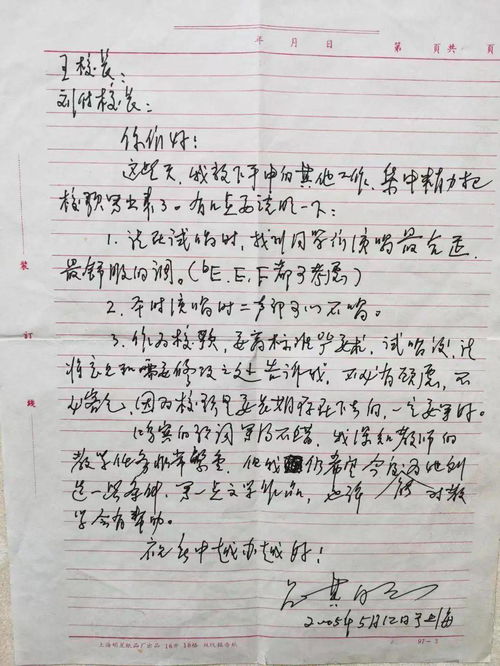 年 月 日 第 頁共 頁
王校长:
刘付校长:
你们好!
这些天,我放下手中的其他工作,集中精力把
校歌写出来了。有几点要说明一下:
1. 请在试唱时,找到同学们演唱最合适、
最舒服的调。(bE、E、F都可考虑)
2. 平时演唱时二声部可以不唱。
3. 作为校歌,要高标准严要求,试唱后,请
将意见和需要修改之处告诉我,不必有顾虑,不
必客气,因为校歌是要长期存在下去的,一定要写好。
的歌词写得不错,我深知教师的
教学任务非常繁重,但我仍希望今后为他创
造一些条件,写一点文学作品,也许能对教
学会有帮助。
祝 中越办越好!
2005年5月12日于上海
上海明星纸品厂出品 16开 18格 双线报告纸
97-3
装
订
线